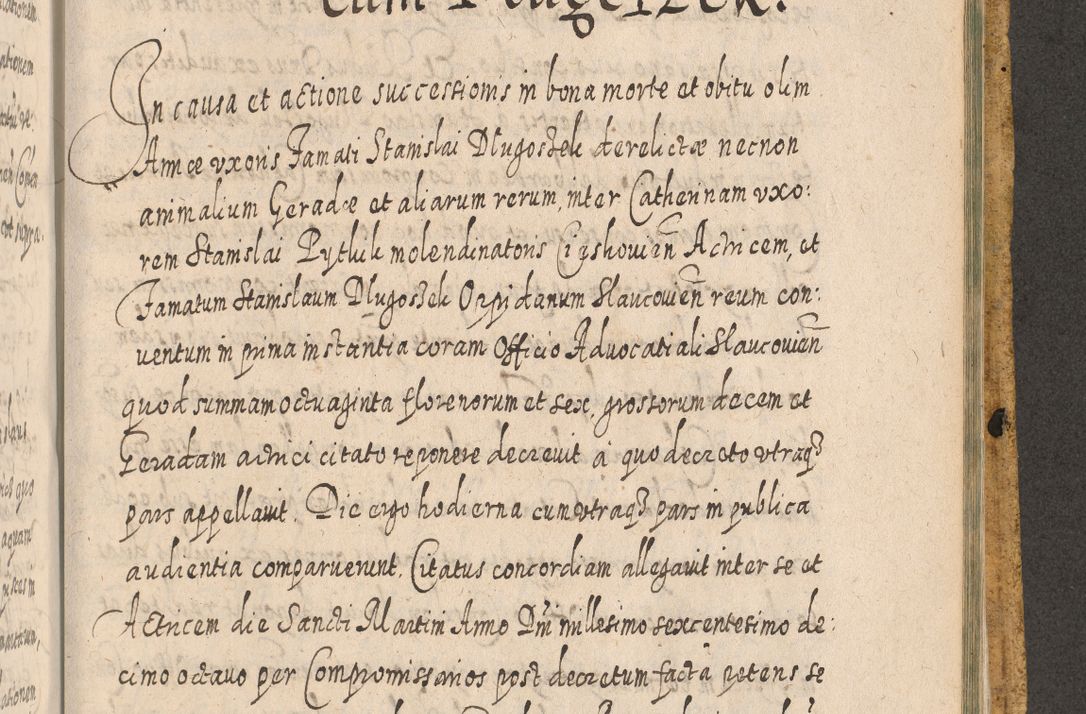 cum Dlugoszek.
In causa et actione successionis in bona morte et obitu olim
Annæ uxoris Famati Stanislai Dlugoszek derelictæ necnon
animalium Geradæ et aliarum rerum, inter Catherinam uxo:
rem Stanislai Pytlik molendinatoris Ciꝫshovien̄ Actricem, et
Famatum Stanislaum Dlugoszek Oppidanum Slaucovien̄ reum con:
ventum in prima instantia coram Officio Advocatiali Slaucovien̄
quod summam octuaginta florenorum et sex, grossorum decem et
Geradam actrici citato reponere decrevit á quo decreto utraqꝫ
pars appellavit. Die ergo hodierna cum utraqꝫ pars in publica
audientia comparuerunt. Citatus concordiam allegavit inter se et
Actricem die Sancti Martini Anno Dni millesimo sexcentesimo de:
cimo octavo per Compromissarios post decretum facta petens se